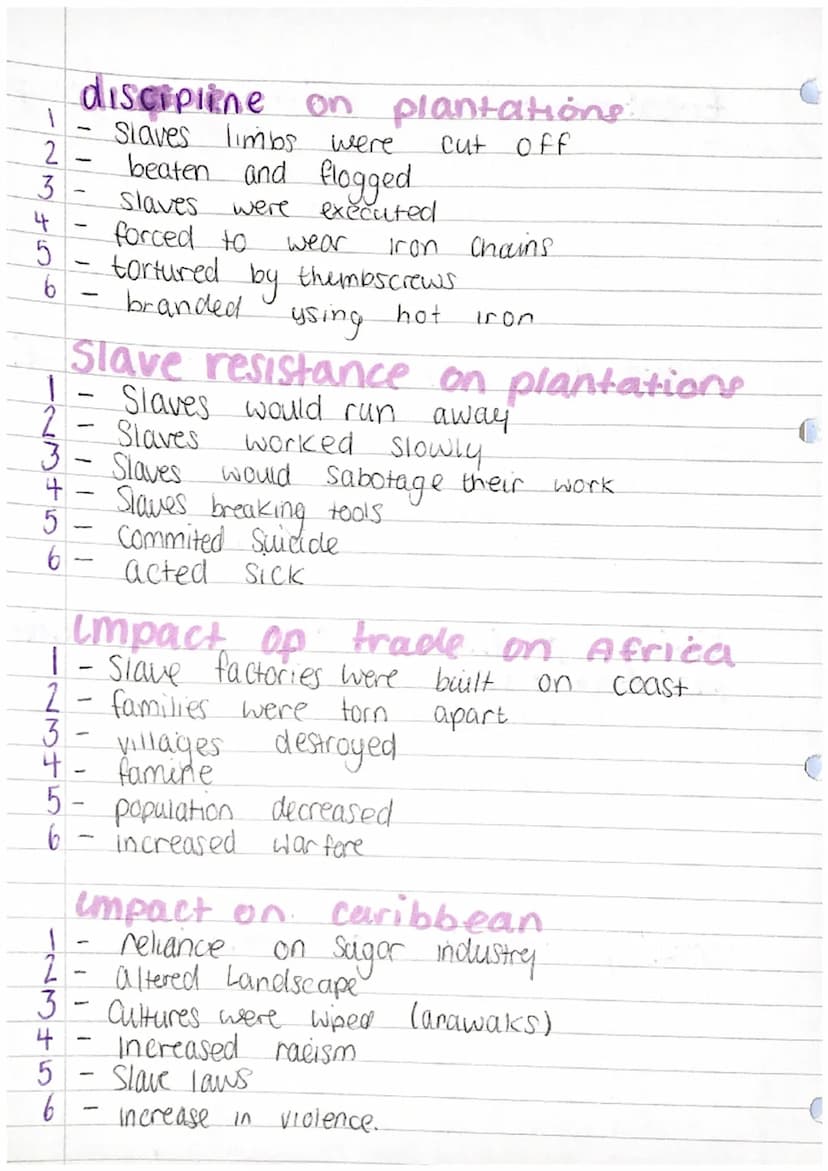 discipline on plantations
1 - Slaves limbs were cut off
2 - beaten and flogged
3 - slaves were executed
4 - forced to wear iron chains
5 - tortured by thumbscrews
6 - branded using hot iron
Slave resistance on plantations
1 - Slaves would run away
2 - Slaves worked slowly
3 - Slaves would sabotage their work
4 - Slaves breaking tools
5 - Commited Suicide
6 - acted sick
Impact op trade on Africa
1 - Slave factories were built on coast
2 - families were torn apart
3 - villages destroyed
4 - famine
5 - population decreased
6 - increased warfare
Impact on caribbean
1 - reliance on Sugar industry
2 - altered Landscape
3 - Cultures were wiped (arawaks)
4 - Increased racism
5 - Slave laws
6 - increase in violence.